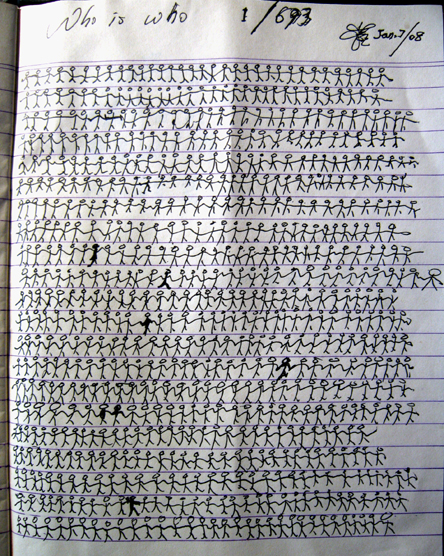 Who is who 1/693
Jan.7/08